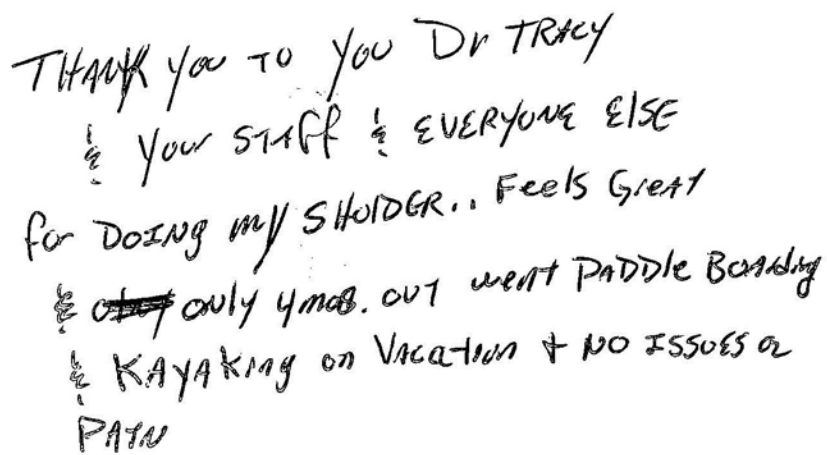 THANK you TO you Dr TRACY
& your STAFF & EVERYONE ElSE
for DOING my SHOlDER.. Feels Great
& only 4mos. out went PADDle BOARding
& KAYAKing on VacatioN + NO ISSUES or
PAIN